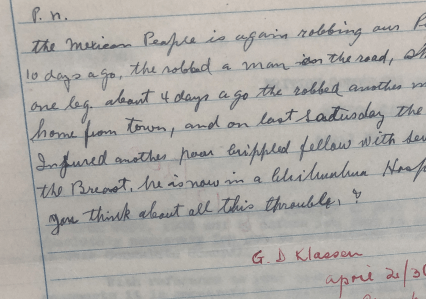 P. n.
the Mexican People is again robbing our P
10 days ago, the robbed a man on the road, sh
one leg about 4 days ago the robbed another m
home from town, and on last Saturday the
Injured another poor crippled fellow with
the Breast, he is now in a Chihuahua Hosp
you think about all this throuble, ?
G. D Klassen
april 26/3